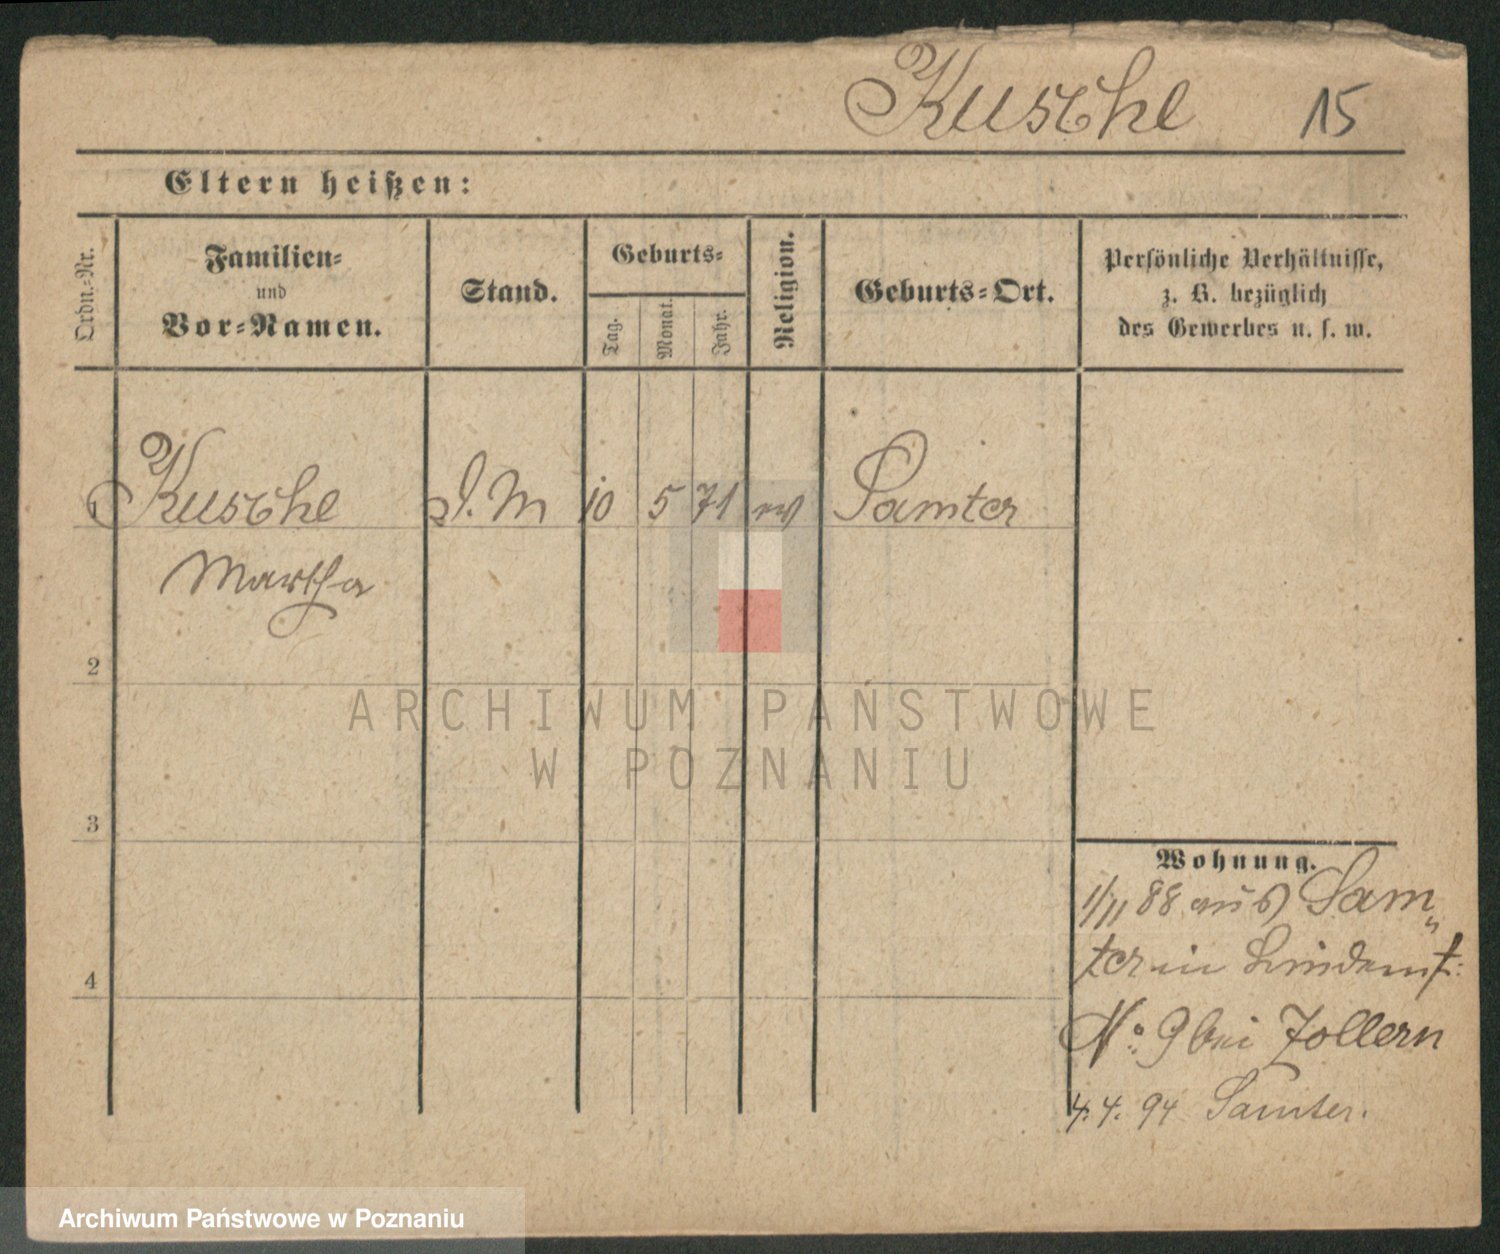 Kuschl 15
Eltern heißen:
Ordn.-Nr.
Familien-
und
Vor-Namen.
Stand.
Geburts-
Tag.
Monat.
Jahr.
Religion.
Geburts-Ort.
Persönliche Verhältnisse,
z. B. bezüglich
des Gewerbes u. s. w.
1 Kuschl D. M 10 5 71 ev Samter
Martha
2
3
4
Wohnung.
1/11 88 aus Sam„
ter in Lindenst:
No: 9 bei Zollern
4. 4. 94 Samter.
ARCHIWUM PAŃSTWOWE
W POZNANIU
Archiwum Państwowe w Poznaniu